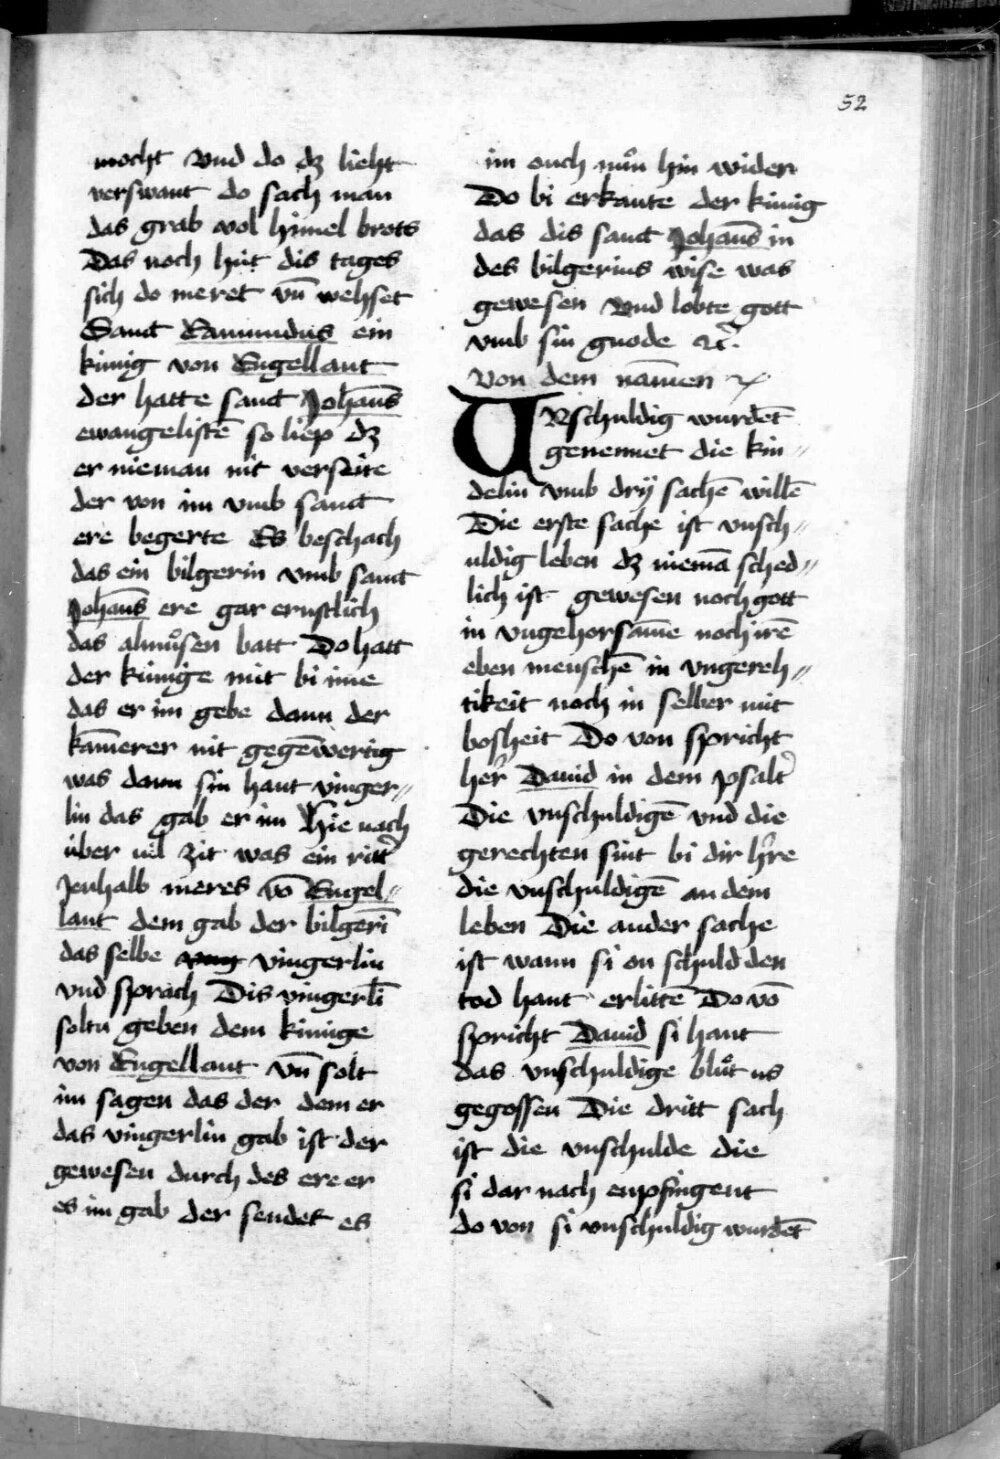 52
mocht Vnd do dz lieht
verswant do sach man
das grab vol himel brots
Das noch hüt dis tages
sich do meret vn̄ wehset
Sanct Eamundus ein
künig von Engellant
der hatte sanct Johan̄s
ewangelistē so liep dz
er nieman nit verseite
der von im vmb sanct
ere begerte Es beschach
das ein bilgerin vmb sanct
Johan̄s ere gar ernstlich
das almuͦsen batt Do hatt
der künige nüt bi ime
das er im gebe dann der
kam̄erer nit gegēwertig
was dann sin hant vinger〃
lin das gab er im Hie nach
über vil zit was ein ritt̾
Jenhalb meres vō Engel〃
lant dem gab der bilgerī
das selbe vingerlin
vnd sprach Dis vingerlī
soltu geben dem künige
von Engellant Vn̄ solt
im sagen das der dem er
das vingerlin gab ist der
gewesen durch des ere er
es im gab der sendet es
im ouch nuͦn hin wider
Do bi erkante der künig
das dis sanct Johan̄s in
des bilgerins wise was
gewesen Vnd lobte gott
vmb sin gnode ꝛc̄.
Von dem nam̄en
VNschuldig wurdēt
genennet die kin〃
delin vmb drÿ sachē willē
Die erste sache ist vnsch〃
uldig leben dz niemā sched〃
lich ist gewesen noch gott
in vngehorsam̄e noch irē
eben menschē in vngereh〃
tikeit noch in selber mit
bosheit Do von spricht
her̄ Dauid in dem psalt̾
Die vnschuldigē vnd die
gerechten sint bi dir hr̄e
die vnschuldigē an dem
leben Die ander sache
ist wann si on schuld den
tod hant erlittē Do vō
spricht Dauid si hant
das vnschuldige bluͦt us
gegossen Die dritt sach
ist die vnschulde die
si dar nach enpfingent
do von si vnschuldig wurdēt